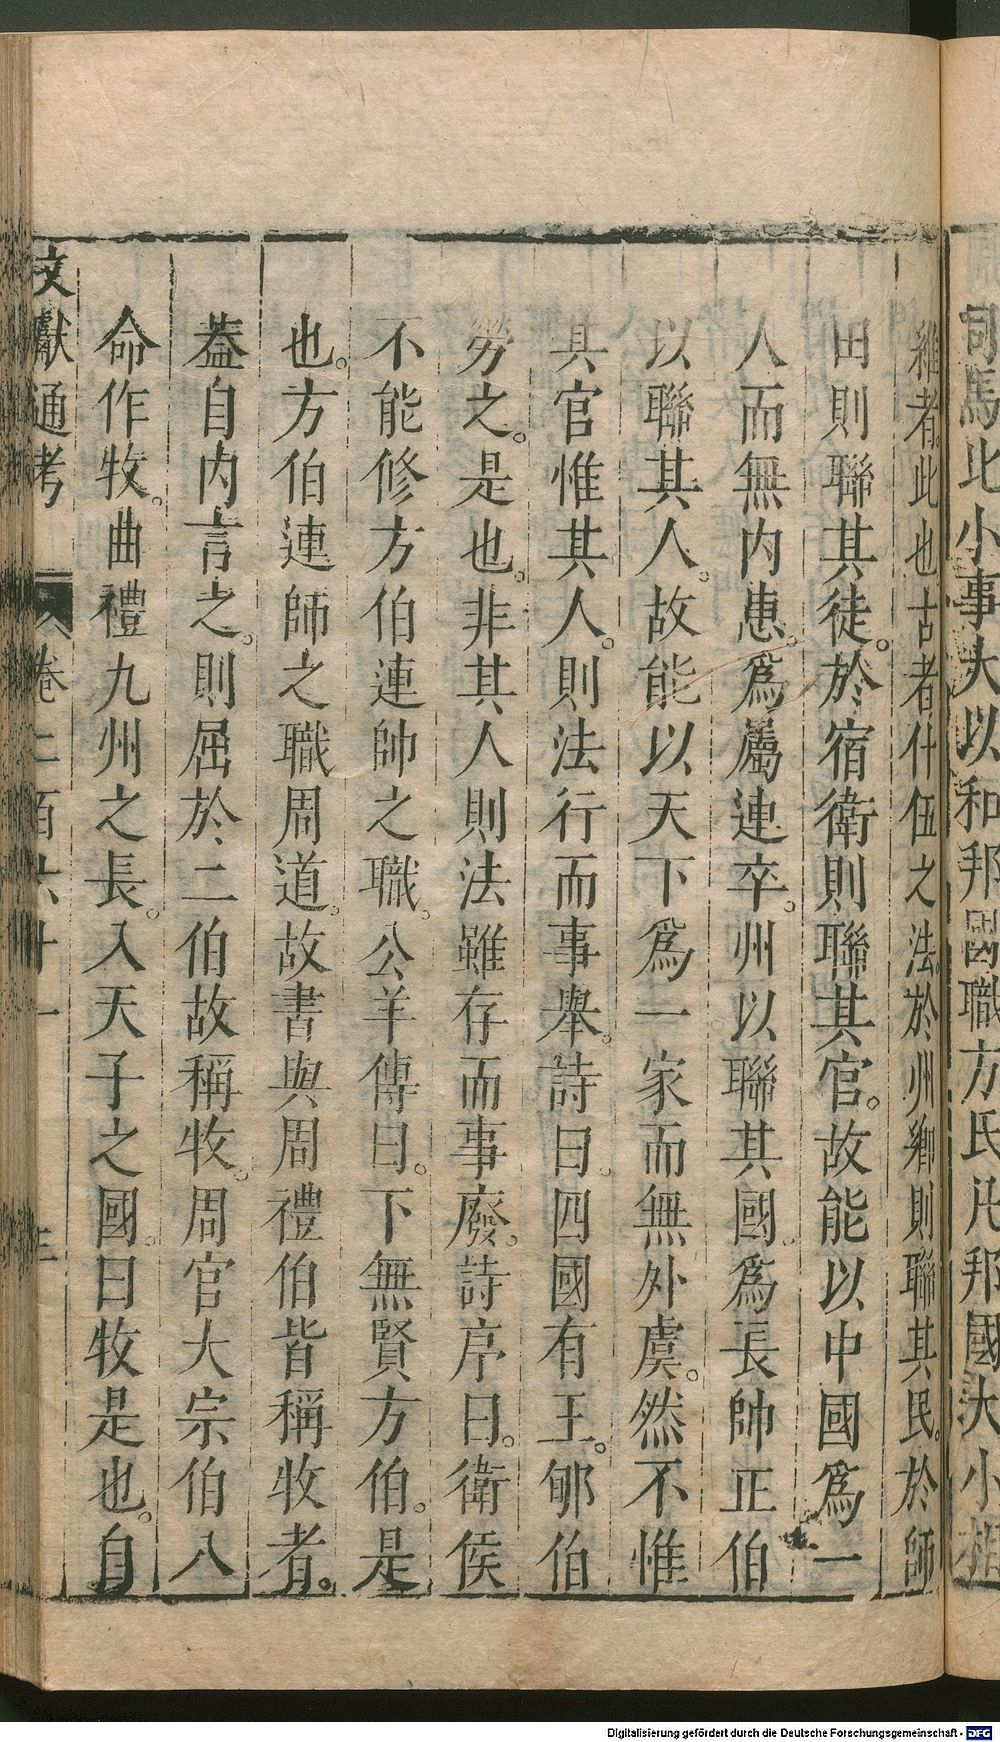 司馬比小事大以和邦國職方氏凡邦國大小相
維者此也古者什伍之法於州鄉則聯其民於師
田則聯其徒於宿衛則聯其官故能以中國爲一
人而無內患爲屬連卒州以聯其國爲長帥正伯
以聯其人故能以天下爲一家而無外虞然不惟
其官惟其人則法行而事舉詩曰四國有王郇伯
勞之是也非其人則法雖存而事廢詩序曰衛侯
不能修方伯連帥之職公羊傳曰下無賢方伯是
也方伯連師之職周道故書與周禮伯皆稱牧者
葢自內言之則屈於二伯故稱牧周官大宗伯八
命作牧曲禮九州之長入天子之國曰牧是也自
文獻通考 卷二百六十一 三
Digitalisierung gefördert durch die Deutsche Forschungsgemeinschaft - DFG